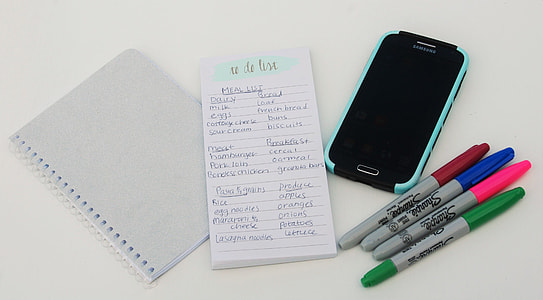 to do list
MEAL LIST
Dairy Bread
milk loaf
eggs french bread
cottage cheese buns
sour cream biscuits
meat Breakfast
hamburger cereal
Pork loin oatmeal
Boneless chicken granola bars
Pasta/grains produce
Rice apples
egg noodles oranges
Macaroni & onions
cheese potatoes
Lasagna noodles lettuce
SAMSUNG
Sharpie
Sharpie
Sharpie
Sharpie